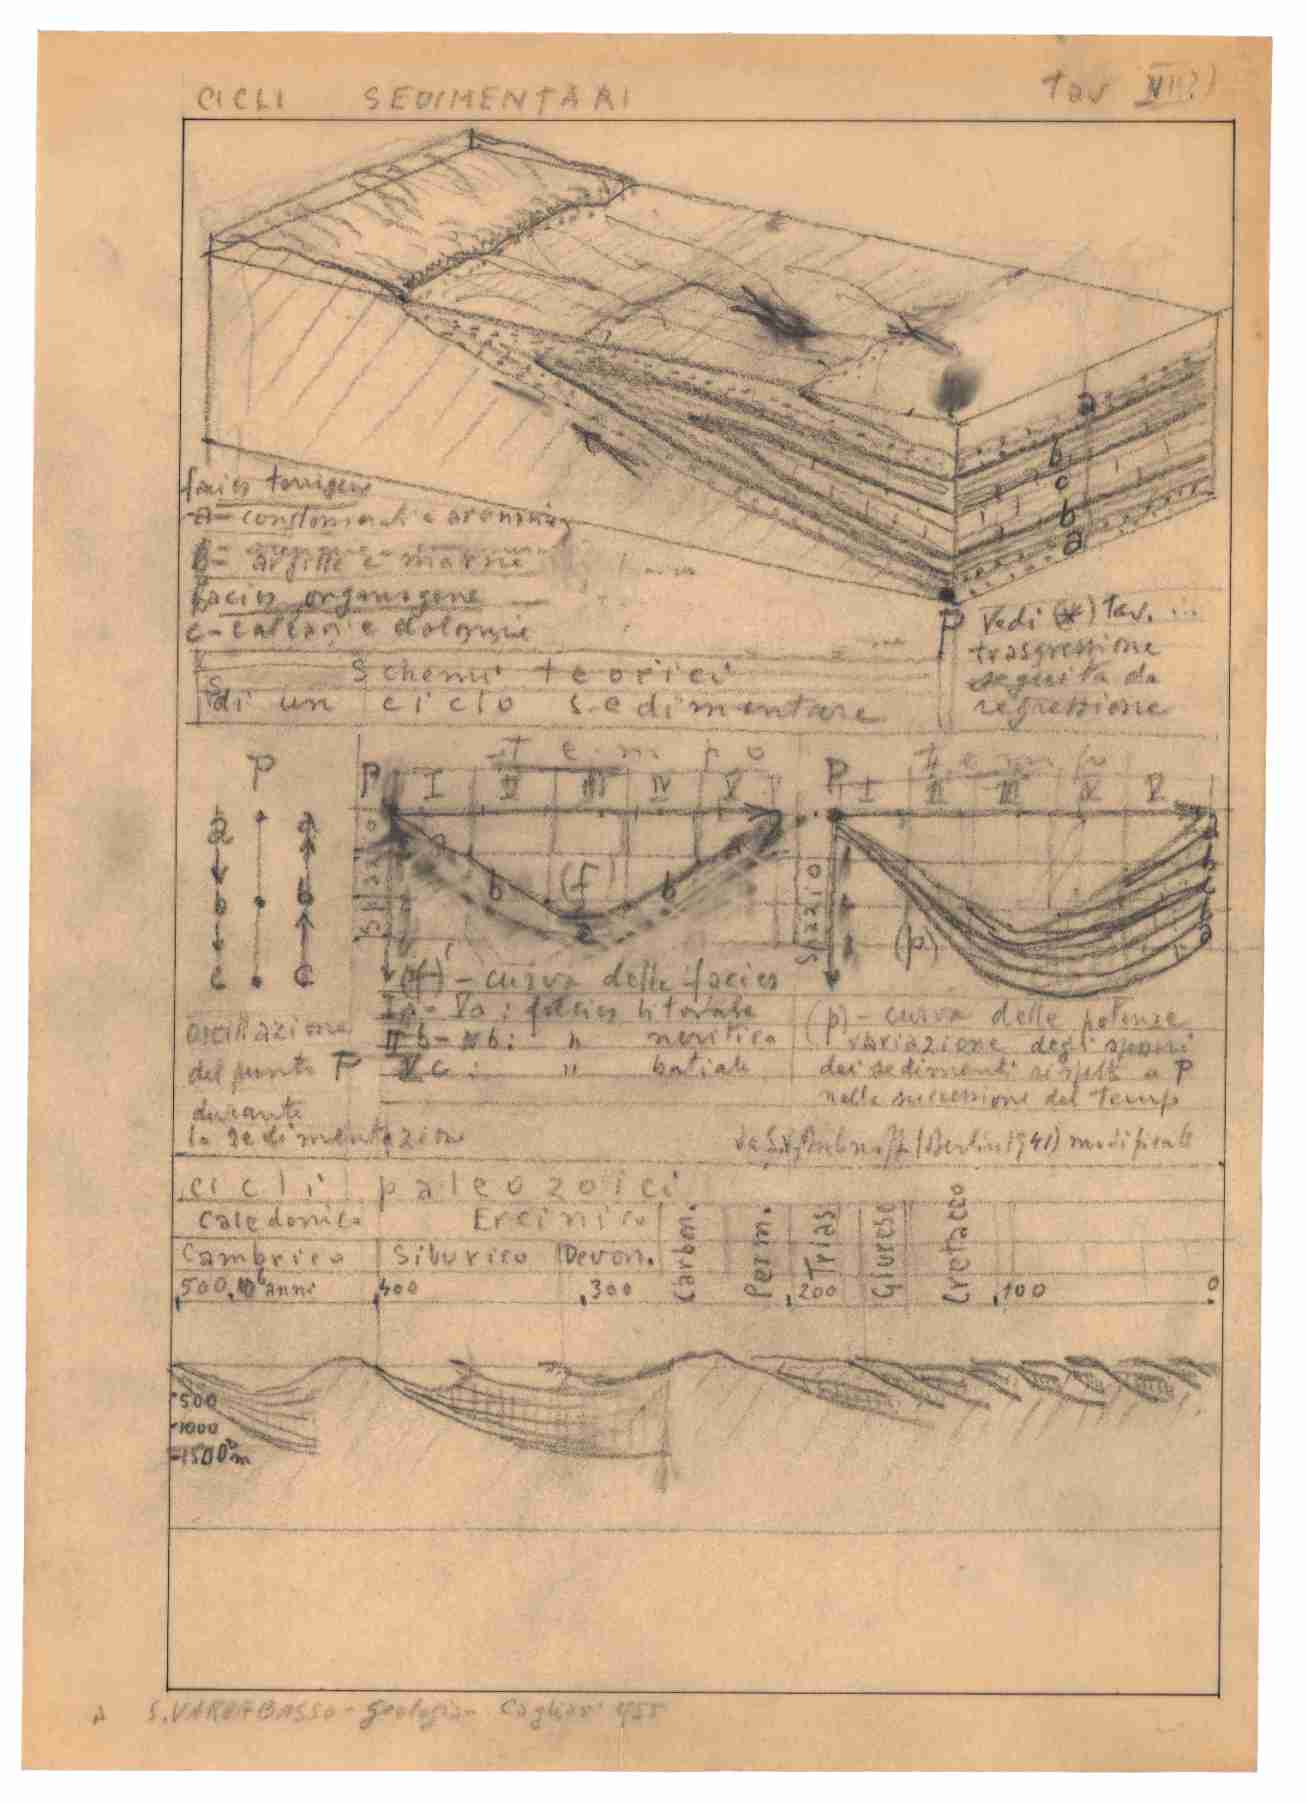 CICLI SEDIMENTARI
tav
a
b
c
b
a
facies terrigene
a - conglomerati e arenarie
b - argille e marne
facies organogene
c - calcari e dolomie
P
Vedi (*) tav. ...
trasgressione
seguita da
regressione
Schemi teorici
di un ciclo sedimentare
P
a a
b b
c c
oscillazione
del punto P
durante
la sedimentazione
Tempo
P I II III IV V
Spazio
a
b (f) b
c
(f) - curva delle facies
Ia - Va : facies litorale
II b - IV b : " neritica
c : " batiale
Tempo
P I II III IV V
Spazio
(p)
(p) - curva delle potenze
variazione degli spessori
dei sedimenti rispetto a P
nella successione del tempo
(Berlin 1941) modificato
cicli paleozoici
Caledonico Ercinico
Cambrico Silurico Devon. Carbon. Perm. Trias Giurese Cretaceo
500.10⁶ anni 400 300 200 100 0
-500
-1000
-1500 m
S. VARDABASSO - Geologia - Cagliari 1955